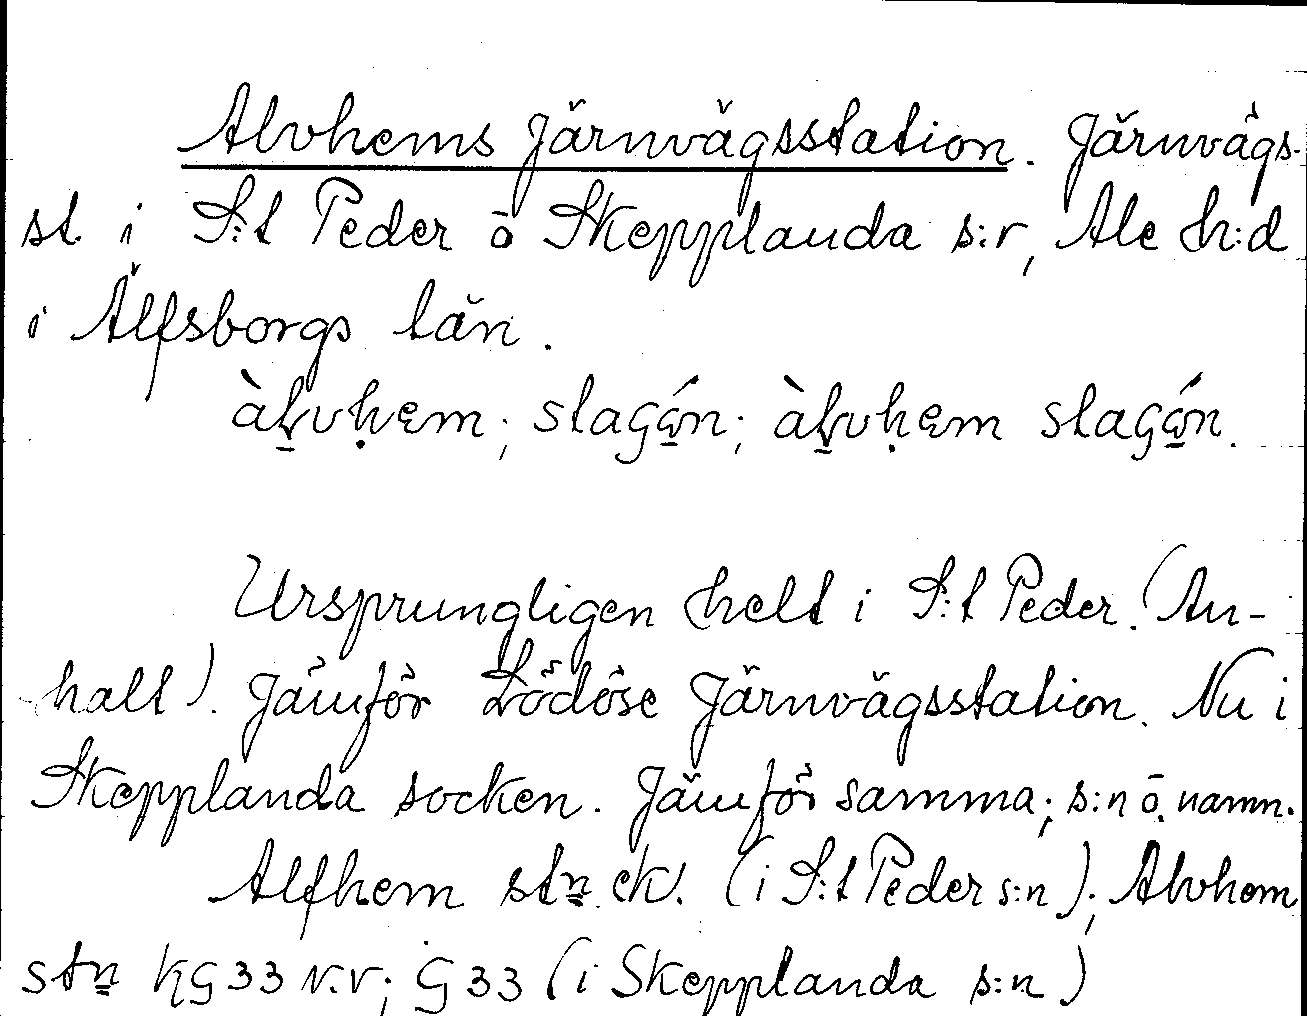 Alvhems Järnvägsstation. Järnvägs-
st. i S:t Peder ō Skepplanda s:r, Ale h:d
i Älfsborgs län.
àl̠vḥem; stagɷ́n; àl̠vḥem stagɷ́n.
Ursprungligen helt i S:t Peder. (An-
halt). Jämför Lödöse Järnvägsstation. Nu i
Skepplanda socken. Jämför samma; s:n ō. namn.
Alfhem stn ek. (i S:t Peder s:n); Alvhem
stn KG 33 N.V; G 33 (i Skepplanda s:n)